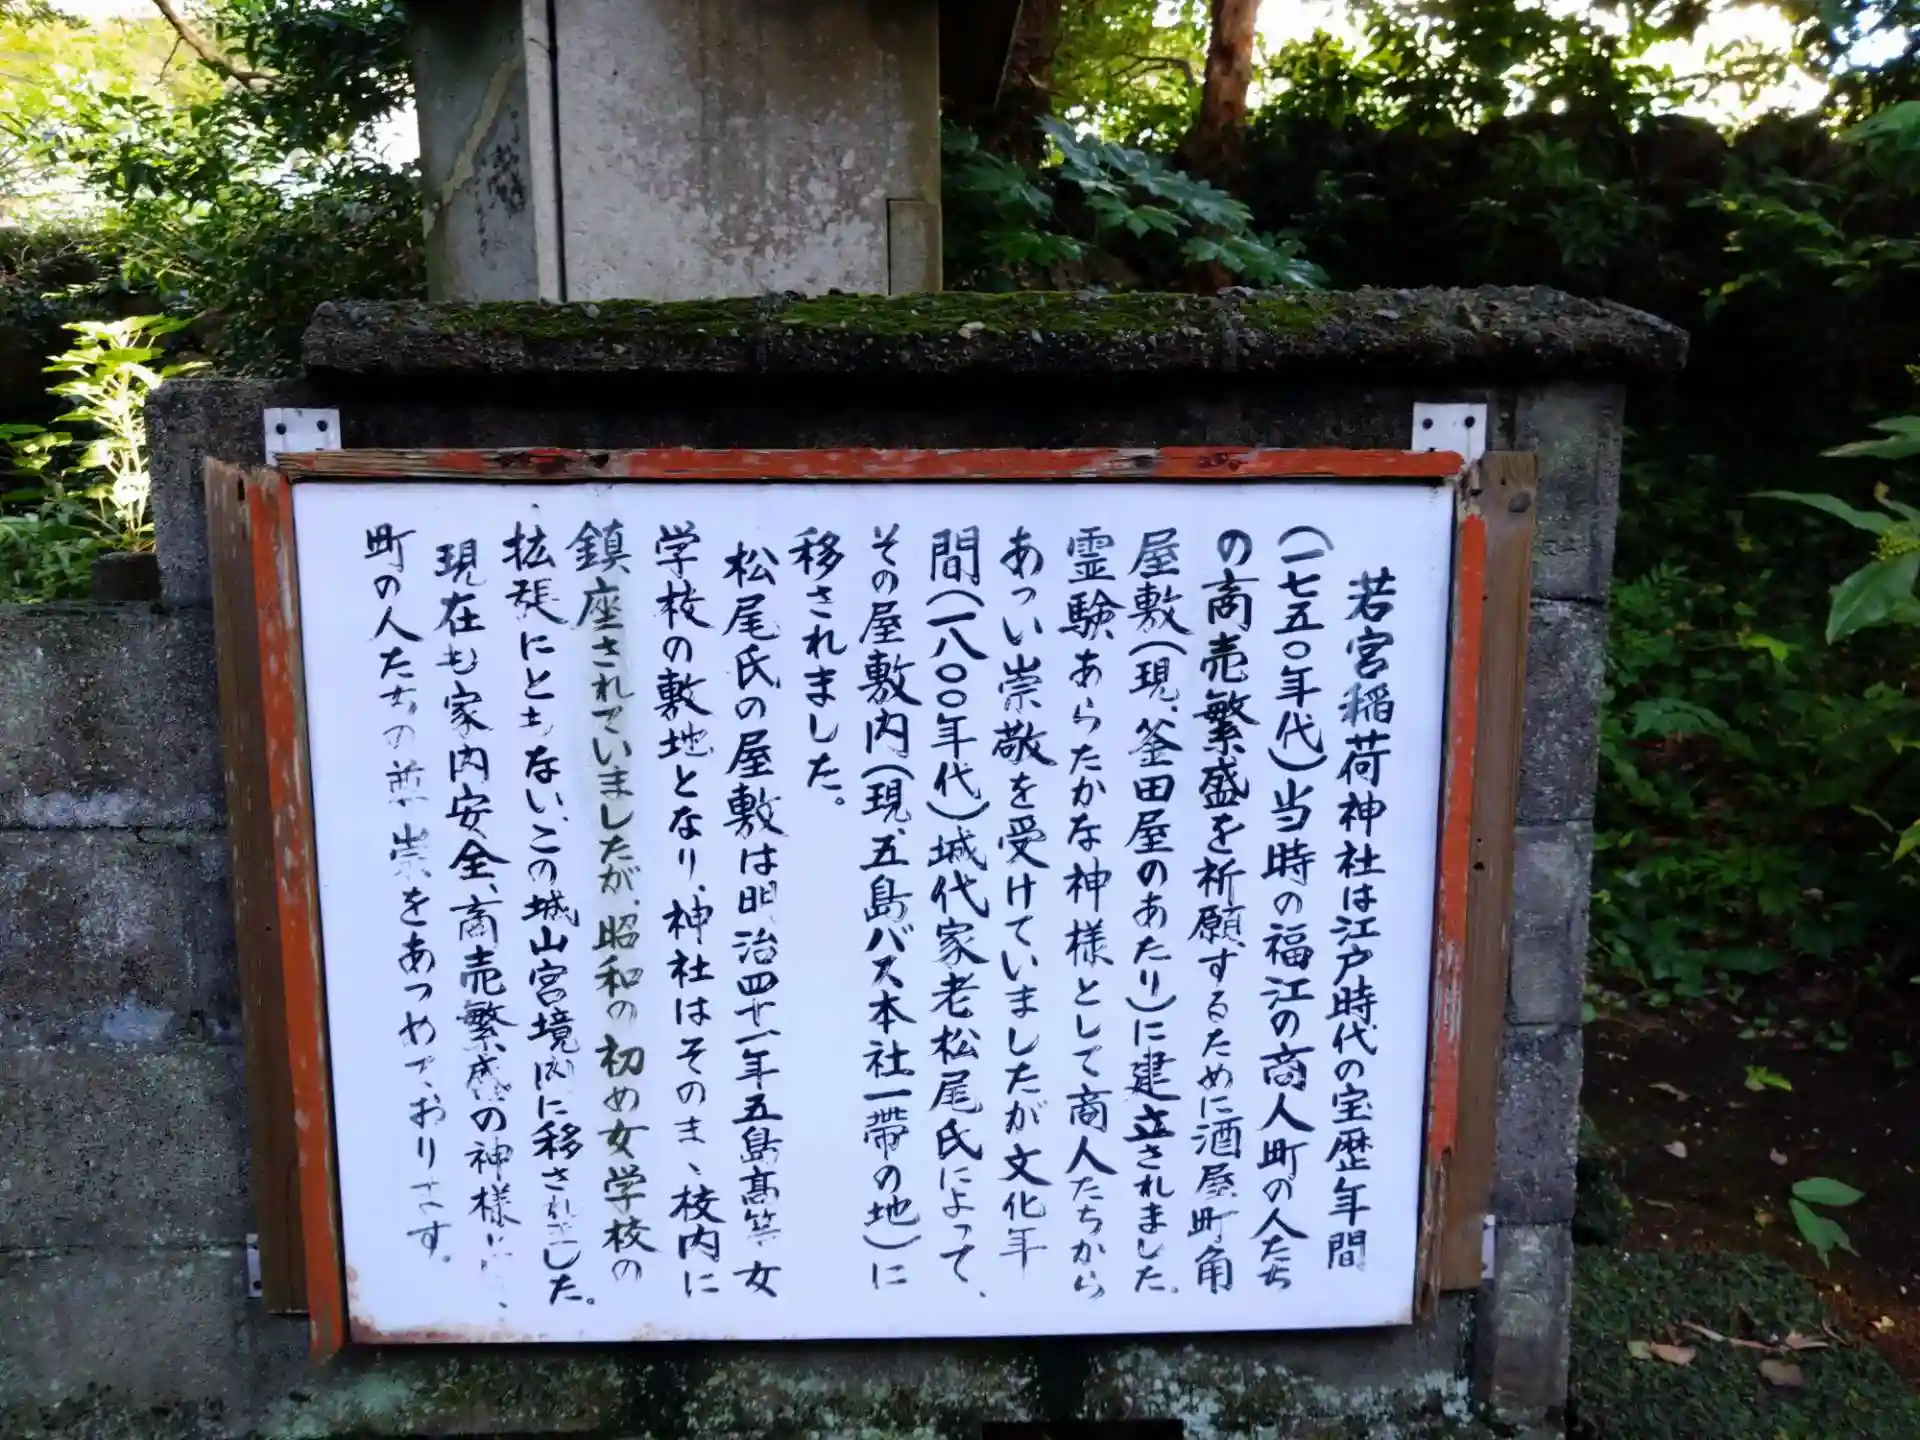 若宮稲荷神社は江戸時代の宝歴年間
(一七五〇年代)当時の福江の商人町の人たち
の商売繁盛を祈願するために酒屋町角
屋敷(現、釜田屋のあたり)に建立されました。
霊験あらたかな神様として商人たちから
あつい崇敬を受けていましたが文化年
間(一八〇〇年代)城代家老松尾氏によって、
その屋敷内(現、五島バス本社一帯の地)に
移されました。
松尾氏の屋敷は明治四十一年五島高等女
学校の敷地となり、神社はそのまゝ校内に
鎮座されていましたが、昭和の初め女学校の
拡張にともない、この城山宮境内に移されました。
現在も家内安全、商売繁盛の神様
町の人たちの尊崇をあつめております。